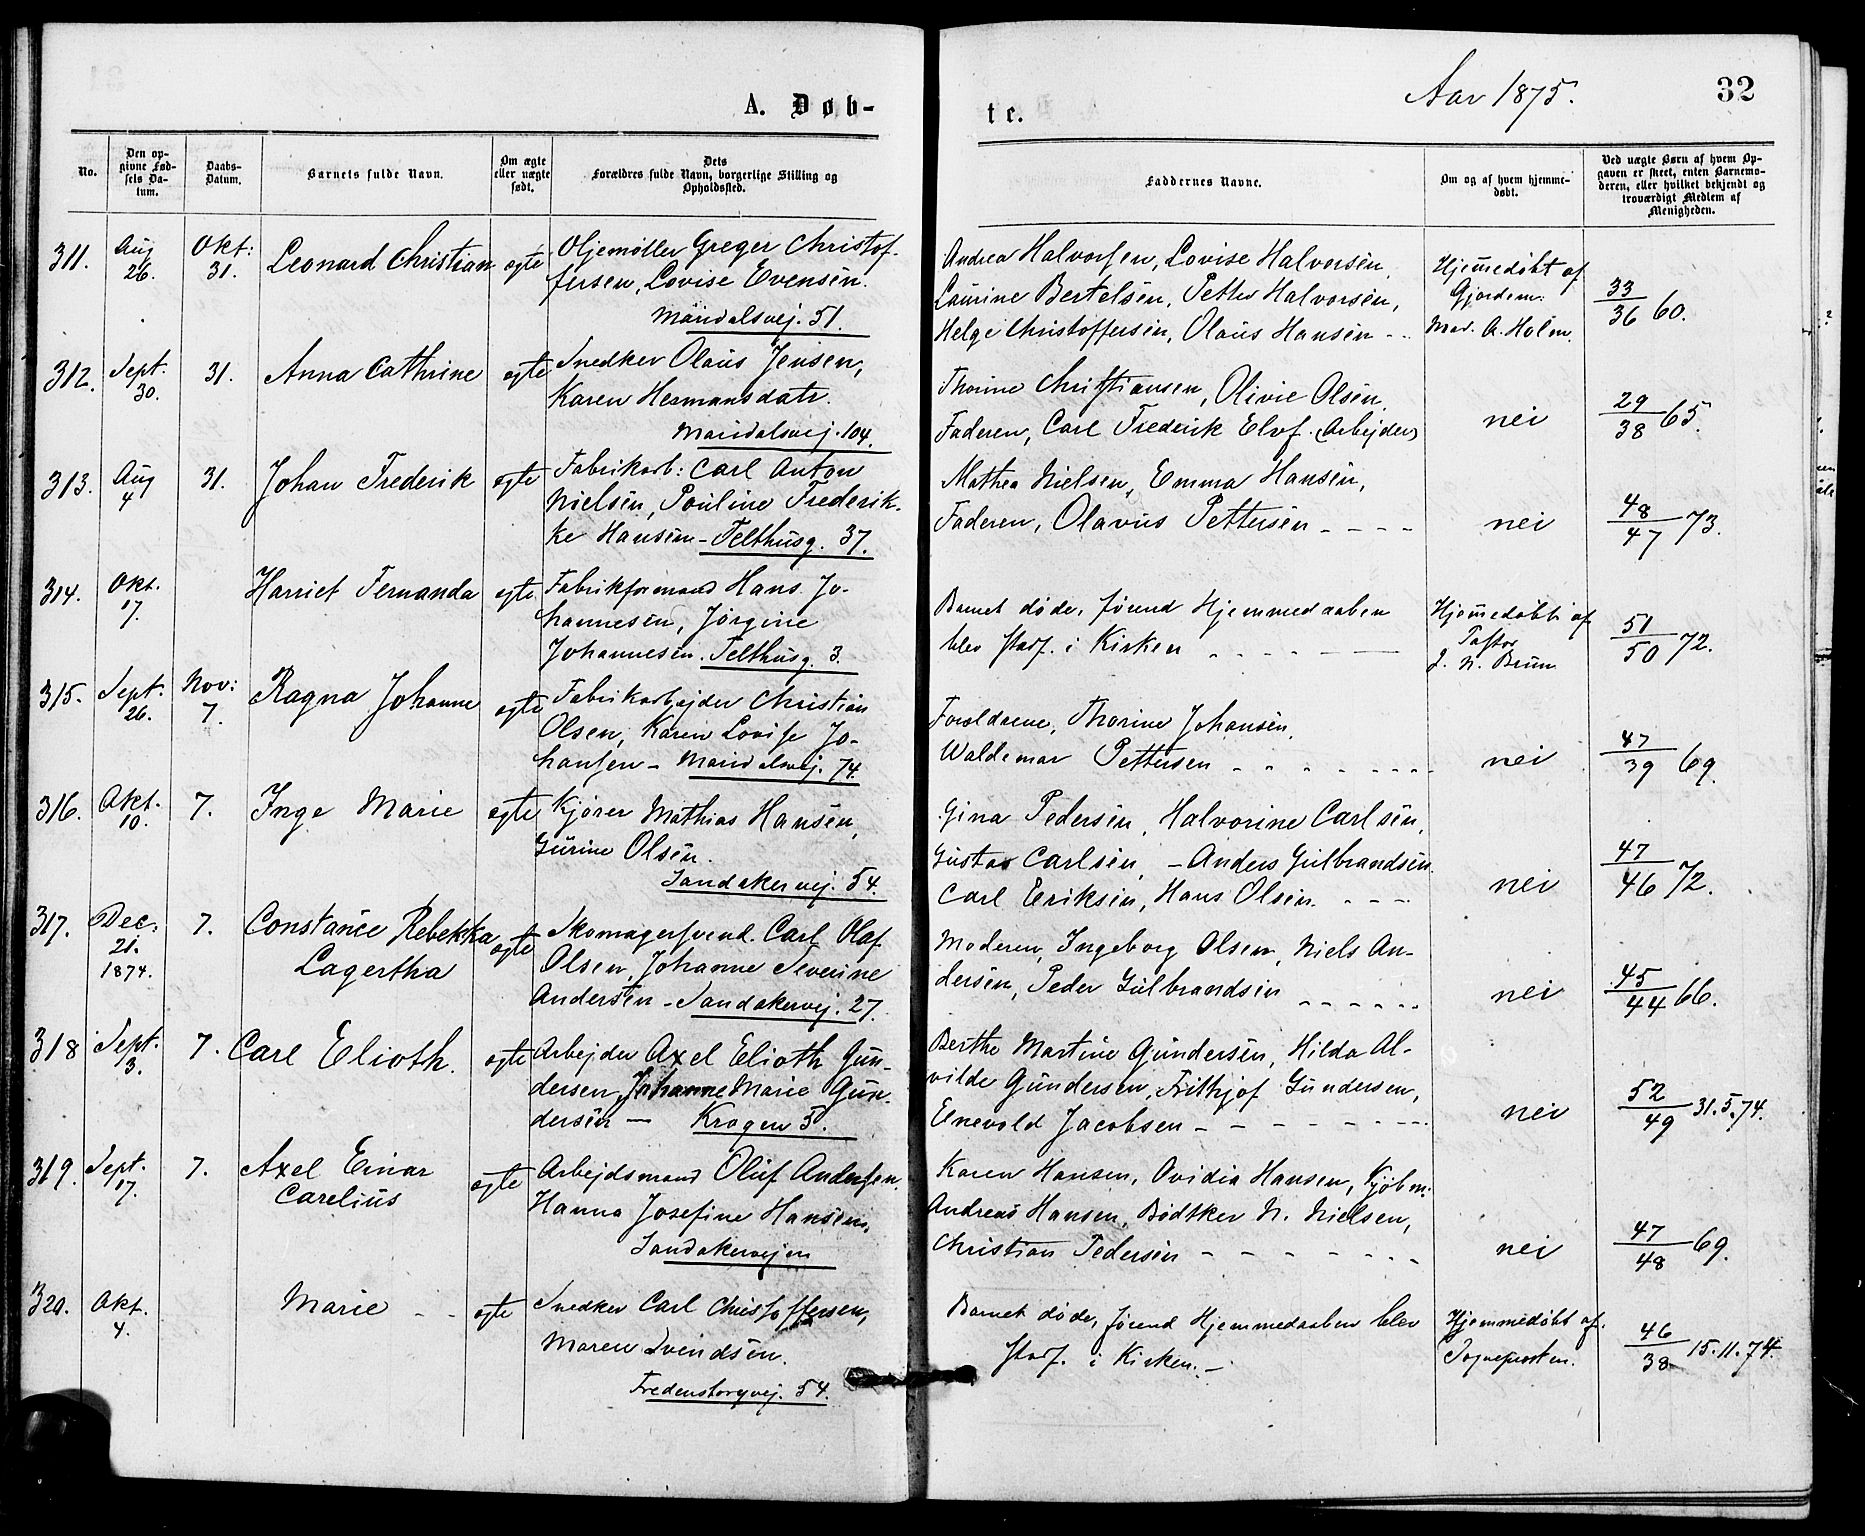 Aar 1875.
32
A. Døb-
te.
No.
Den op-
givne Fød-
sels Da-
tum.
Daabs-
Datum.
Barnets fulde Navn.
Om ægte
eller uægte
født.
Dets
Forældres fulde Navn, borgerlige Stilling og
Opholdssted.
Faddernes Navne.
Om og af hvem hjemme-
døbt.
Ved uægte Børn af hvem Op-
gaven er skeet, enten Barnemo-
deren, eller hvilket bekjendt og
troværdigt Medlem af
Menigheden.
311.
Aug
26.
Okt:
31.
Leonard Christian
ægte
Oljemøller Greger Christof-
fersen, Lovise Evensen.
Maridalsvej. 51.
Andrea Halvorsen, Lovise Halvorsen,
Laurine Bertelsen, Petter Halvorsen,
Helge Christoffersen, Olaus Hansen - -
Hjemedøbt af
Gjordem:
Mad. A. Holm.
33
36 60.
312.
Sept.
30.
31.
Anna Cathrine
ægte
Snedker Olaus Jensen,
Karen Hermansdatr.
Maridalsvej. 104.
Thorine Christiansen, Olivie Olsen,
Faderen, Carl Frederik Elvf. (Arbejder)
nei
29
38 65.
313.
Aug
4
31.
Johan Frederik
ægte
Fabrikarb: Carl Anton
Nielsen, Pauline Frederik-
ke Hansen - Telthusg. 37.
Mathea Nielsen, Emma Hansen,
Faderen, Olavus Pettersen - - - -
nei
48
47 73.
314.
Okt.
17.
Harriet Fernanda
ægte
Fabrikformand Hans Jo-
hannesen, Jørgine
Johannesen. Telthusg. 3.
Barnet døde, førend Hjemmedaaben
blev stadf. i Kirken - - - - -
Hjemedøbt af
Pastor
J. N. Brun
51
50 72.
315.
Sept.
26.
Nov:
7.
Ragna Johanne
ægte
Fabrikarbejder Christian
Olsen, Karen Lovise Jo-
hansen - Maridalsvej. 74.
Forældrene, Thorine Johansen,
Waldemar Pettersen - - - - - - -
nei
47
39 69.
316.
Okt.
10.
7.
Inge Marie
ægte
Kjører Mathias Hansen,
Gurine Olsen.
Sandakervej. 54.
Gina Pedersen, Halvorine Carlsen,
Gustav Carlsen, - Anders Gulbrandsen
Carl Eriksen, Hans Olsen. - - -
nei
47
46 72.
317.
Dec.
21.
1874.
7.
Constance Rebekka
Lagertha
ægte
Skomagersvend. Carl Olaf
Olsen, Johanne Severine
Andersen - Sandakervej. 27.
Moderen, Ingeborg Olsen, Niels An-
dersen, Peder Gulbrandsen - - - - - -
nei
45
44 66.
318
Sept.
3.
7.
Carl Elioth.
ægte
Arbejder Axel Elioth Gun-
dersen, Johanne Marie Gun-
dersen - Krogen 5.
Berthe Martine Gundersen, Hilda Al-
vilde Gundersen, Frithjof Gundersen,
Enevold Jacobsen - - - - - - - -
nei
52
49 31.5.74.
319.
Sept.
17.
7.
Axel Einar
Carelius
ægte
Arbejdsmand Oluf Andersen.
Hanna Josefine Hansen,
Sandakervejen
Karen Hansen, Ovidia Hansen, Kjøbm.
Andreas Hansen, Bødtker N. Nielsen,
Christian Pedersen - - - - - - -
nei
47
48 69.
320.
Okt.
4.
Marie - -
ægte
Snedker Carl Christoffersen,
Maren Svendsen.
Fredensborgvej. 54.
Barnet døde, førend Hjemmedaaben blev
stadf. i Kirken. -
Hjemmedøbt af.
Sognepresten.
46
38 15.11.74.